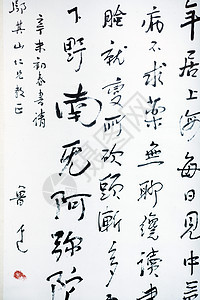 年居上海每日見中
病不求藥無聊纔讀書
臉就變所砍頭漸多
下野南无阿弥陀
辛未初春書請
鄔其山仁兄教正
魯迅